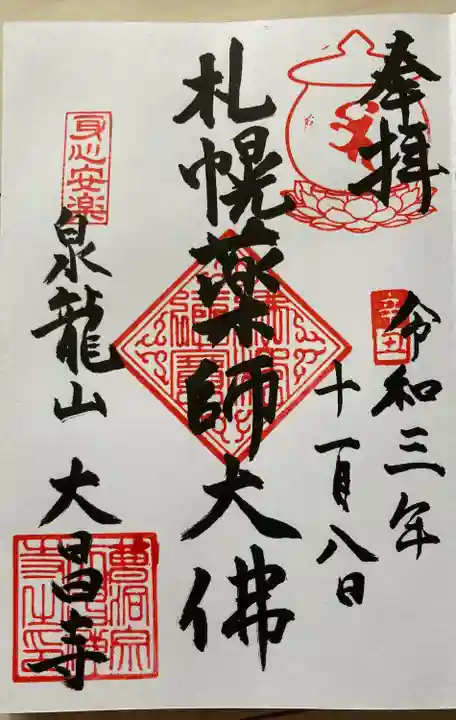 奉拝
令和三年
十一月八日
辛丑
札幌薬師大佛
身心安楽
泉龍山 大昌寺